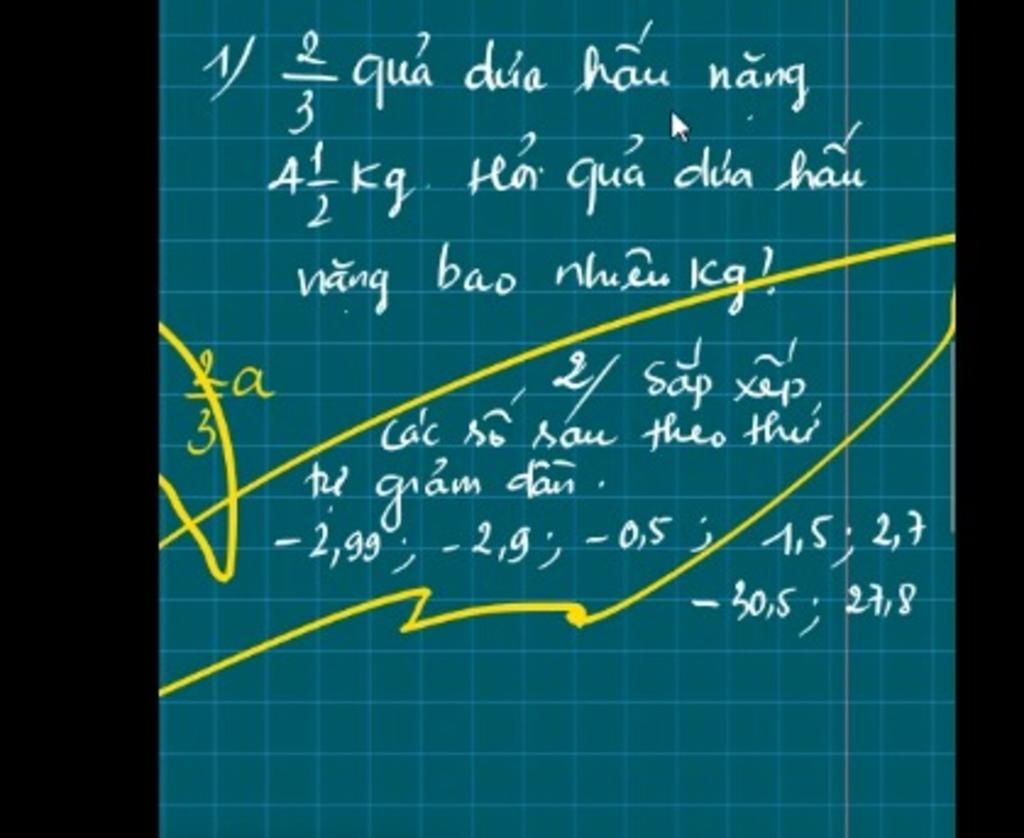 1) 2/3 quả dưa hấu nặng
4 1/2 Kg. Hỏi quả dưa hấu
nặng bao nhiêu Kg?
2/3 a
2/ Sắp xếp
các số sau theo thứ
tự giảm dần.
-2,99; -2,9; -0,5; 1,5; 2,7
-30,5; 27,8